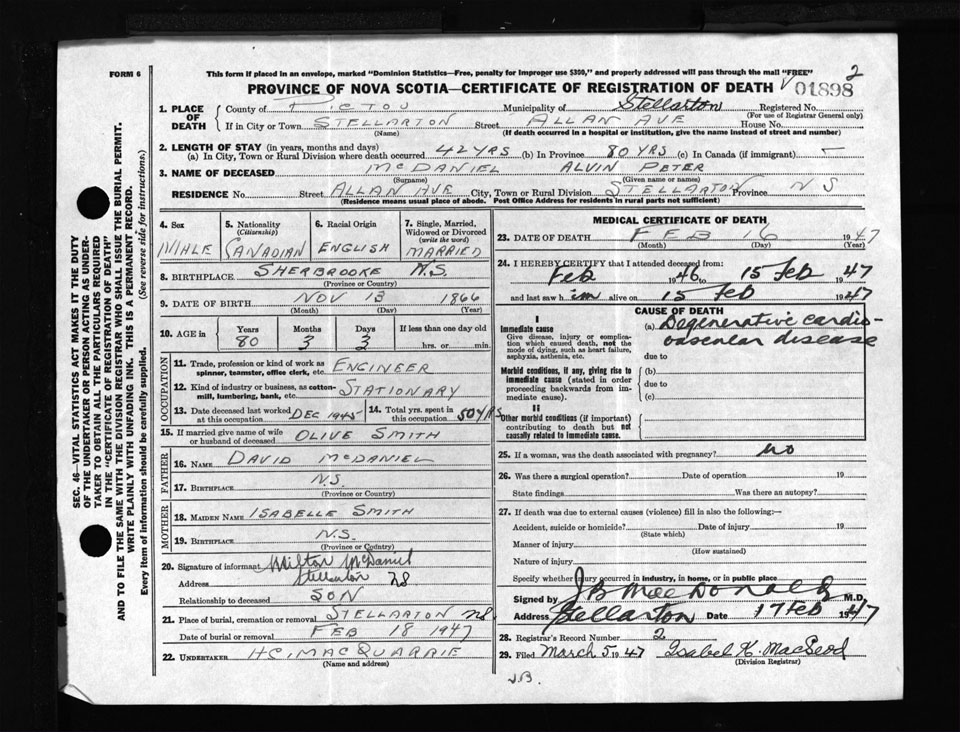 2
FORM 6
This form if placed in an envelope, marked "Dominion Statistics—Free, penalty for improper use $300," and properly addressed will pass through the mail "FREE"
PROVINCE OF NOVA SCOTIA—CERTIFICATE OF REGISTRATION OF DEATH 01898
1. PLACE OF DEATH
County of PICTOU Municipality of Stellarton Registered No.
(For use of Registrar General only)
If in City or Town STELLARTON Street ALLAN AVE House No.
(Name) (If death occurred in a hospital or institution, give the name instead of street and number)
2. LENGTH OF STAY (in years, months and days)
(a) In City, Town or Rural Division where death occurred 42 YRS (b) In Province 80 YRS (c) In Canada (if immigrant) —
3. NAME OF DECEASED McDANIEL ALVIN PETER
(Surname) (Given name or names)
RESIDENCE No. Street ALLAN AVE City, Town or Rural Division STELLARTON Province N S
(Residence means usual place of abode. Post Office Address for residents in rural parts not sufficient)
4. Sex MALE
5. Nationality (Citizenship) CANADIAN
6. Racial Origin ENGLISH
7. Single, Married, Widowed or Divorced (write the word) MARRIED
8. BIRTHPLACE SHERBROOKE N.S.
(Province or Country)
9. DATE OF BIRTH NOV 13 1866
(Month) (Day) (Year)
10. AGE in Years 80 Months 3 Days 3 If less than one day old hrs. or min.
OCCUPATION
11. Trade, profession or kind of work as spinner, teamster, office clerk, etc. ENGINEER
12. Kind of industry or business, as cotton-mill, lumbering, bank, etc. STATIONARY
13. Date deceased last worked at this occupation DEC 1945 14. Total yrs. spent in this occupation 50 YRS
15. If married give name of wife or husband of deceased OLIVE SMITH
FATHER
16. NAME DAVID McDANIEL
17. BIRTHPLACE N.S.
(Province or Country)
MOTHER
18. MAIDEN NAME ISABELLE SMITH
19. BIRTHPLACE N.S.
(Province or Country)
20. Signature of informant Milton McDaniel
Address Stellarton NS
Relationship to deceased SON
21. Place of burial, cremation or removal STELLARTON NS
Date of burial or removal FEB 18 1947
22. UNDERTAKER H.C. MACQUARRIE
(Name and address)
MEDICAL CERTIFICATE OF DEATH
23. DATE OF DEATH FEB 16 1947
(Month) (Day) (Year)
24. I HEREBY CERTIFY that I attended deceased from:
Feb 1946 to 15 Feb 1947
and last saw him alive on 15 Feb 1947
CAUSE OF DEATH
I
Immediate cause
Give disease, injury or complication which caused death, not the mode of dying, such as heart failure, asphyxia, asthenia, etc.
(a) Degenerative cardio-vascular disease
due to
Morbid conditions, if any, giving rise to immediate cause (stated in order proceeding backwards from immediate cause).
(b)
due to
(c)
II
Other morbid conditions (if important) contributing to death but not causally related to immediate cause.
25. If a woman, was the death associated with pregnancy? no
26. Was there a surgical operation? Date of operation 19
State findings Was there an autopsy?
27. If death was due to external causes (violence) fill in also the following:—
Accident, suicide or homicide? Date of injury 19
(State which)
Manner of injury
(How sustained)
Nature of injury
Specify whether injury occurred in industry, in home, or in public place
Signed by J B MacDonald M.D.
Address Stellarton Date 17 Feb 1947
28. Registrar's Record Number 2
29. Filed March 5 1947 Isabel K. MacLeod
(Division Registrar)
J.B.
SEC. 46—VITAL STATISTICS ACT MAKES IT THE DUTY
OF THE UNDERTAKER OR PERSON ACTING AS UNDER-
TAKER TO OBTAIN ALL THE PARTICULARS REQUIRED
IN THE "CERTIFICATE OF REGISTRATION OF DEATH"
AND TO FILE THE SAME WITH THE DIVISION REGISTRAR WHO SHALL ISSUE THE BURIAL PERMIT.
WRITE PLAINLY WITH UNFADING INK. THIS IS A PERMANENT RECORD.
Every item of information should be carefully supplied. (See reverse side for instructions.)